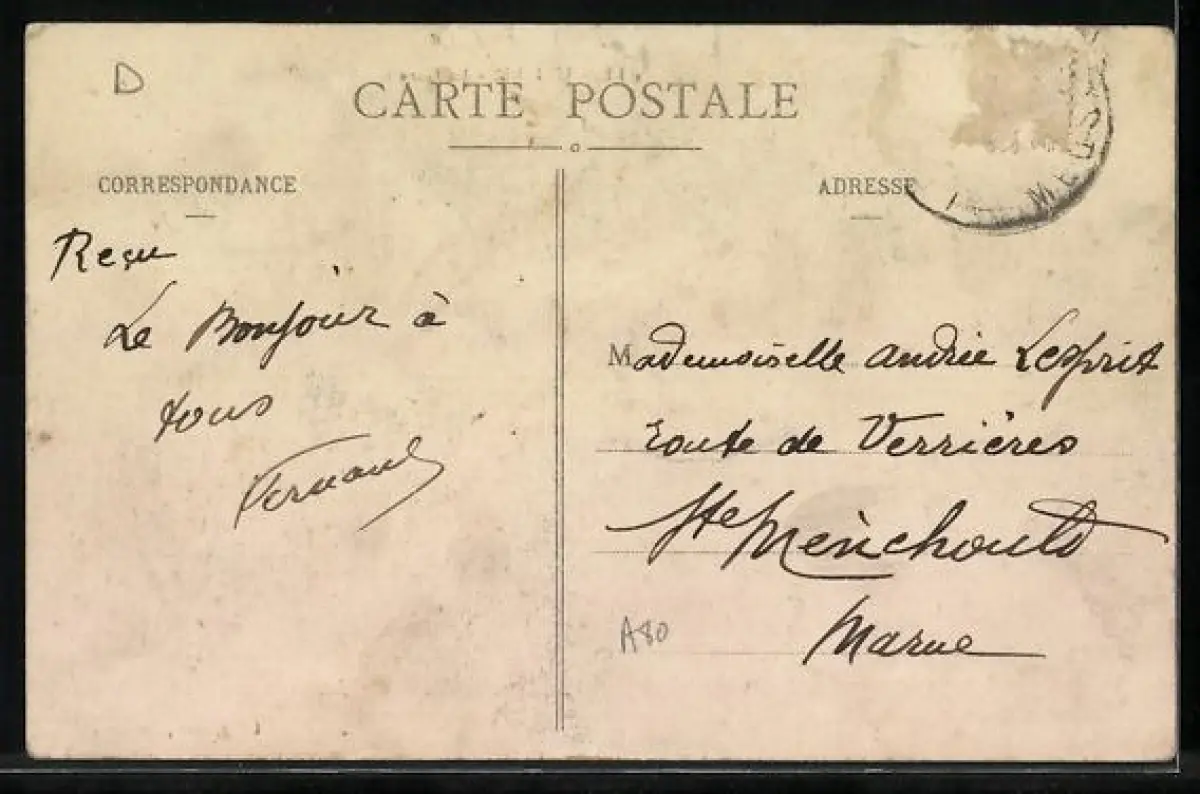 D
CARTE POSTALE
CORRESPONDANCE
ADRESSE
Reçu
Le Bonjour à
tous
Fernand
Mademoiselle Andrée Lesprit
route de Verrières
Ste Ménehould
Marne
A80